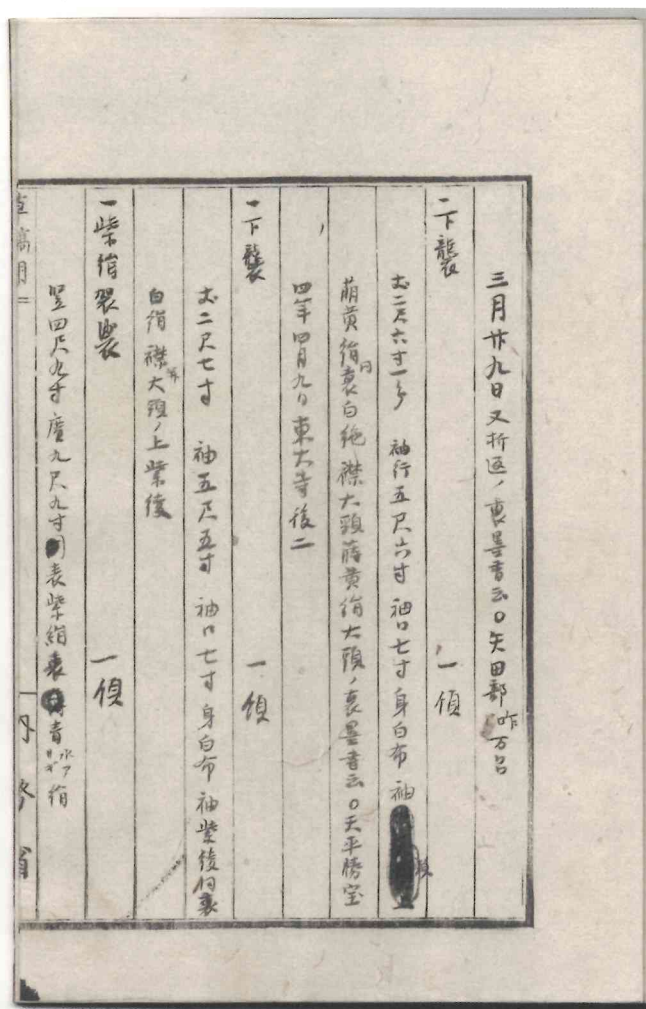 三月廿九日又折返ノ裏墨書云〇矢田部昨万呂
一下襲 一領
丈二尺六寸一分 袖行五尺六寸 袖口七寸 身白布 袖
萌黄絹裏白絁襟大頸萌黄絹大頸ノ裏墨書云〇天平勝宝
四年四月九日東大寺後二
一下襲 一領
丈二尺七寸 袖五尺五寸 袖口七寸 身白布 袖紫綾 裏
白絹襟大頸ノ上紫綾
一紫絹袈裟 一領
竪四尺九寸 廣九尺九寸 表紫絹裏 青 絹
草稿用